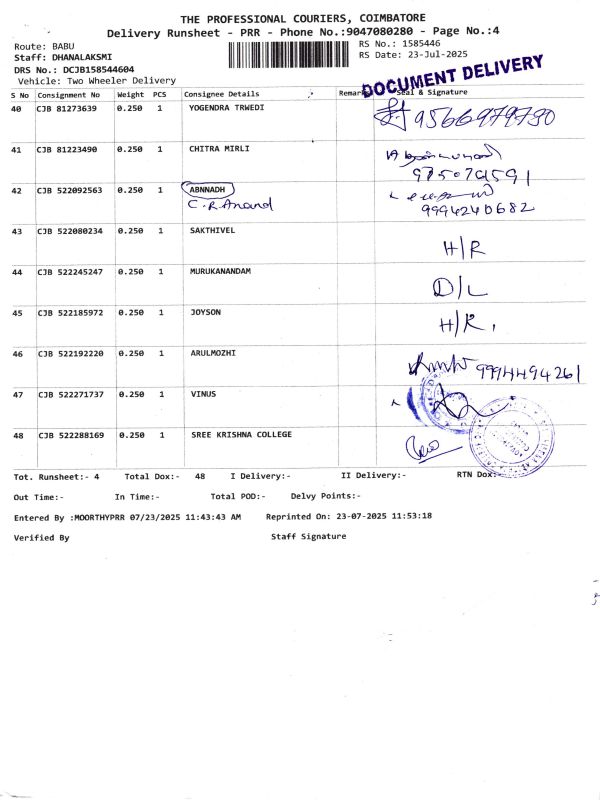 THE PROFESSIONAL COURIERS, COIMBATORE
Delivery Runsheet - PRR - Phone No.:9047080280 - Page No.:4
Route: BABU
RS No.: 1585446
Staff: DHANALAKSMI
RS Date: 23-Jul-2025
DRS No.: DCJB158544604
Vehicle: Two Wheeler Delivery
DOCUMENT DELIVERY
S No Consignment No Weight PCS Consignee Details Remark Seal & Signature
40 CJB 81273639 0.250 1 YOGENDRA TRWEDI 9566979790
41 CJB 81223490 0.250 1 CHITRA MIRLI
42 CJB 522092563 0.250 1 ABNNADH
C.R Anand 9994240682
43 CJB 522080234 0.250 1 SAKTHIVEL H/R
44 CJB 522245247 0.250 1 MURUKANANDAM D/L
45 CJB 522185972 0.250 1 JOYSON H/R,
46 CJB 522192220 0.250 1 ARULMOZHI 9994494261
47 CJB 522271737 0.250 1 VINUS
48 CJB 522288169 0.250 1 SREE KRISHNA COLLEGE
Tot. Runsheet:- 4 Total Dox:- 48 I Delivery:- II Delivery:- RTN Dox:-
Out Time:- In Time:- Total POD:- Delvy Points:-
Entered By :MOORTHYPRR 07/23/2025 11:43:43 AM Reprinted On: 23-07-2025 11:53:18
Verified By Staff Signature